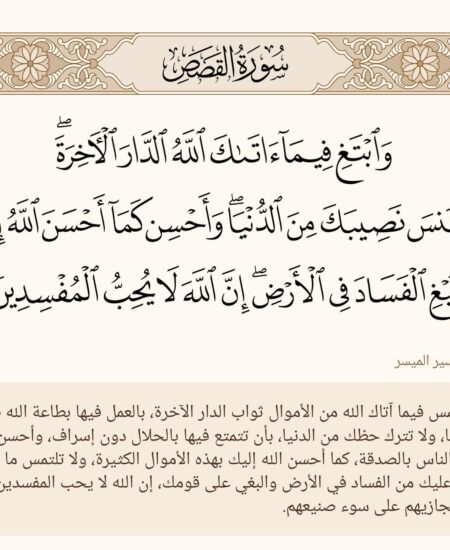 سُورَةُ القَصَصِ
وَٱبۡتَغِ فِيمَآ ءَاتَىٰكَ ٱللَّهُ ٱلدَّارَ ٱلۡأٓخِرَةَۖ
نَصِيبَكَ مِنَ ٱلدُّنۡيَاۖ وَأَحۡسِن كَمَآ أَحۡسَنَ ٱللَّهُ
ٱلۡفَسَادَ فِي ٱلۡأَرۡضِۖ إِنَّ ٱللَّهَ لَا يُحِبُّ ٱلۡمُفۡسِدِين
الميسر
فيما آتاك الله من الأموال ثواب الدار الآخرة، بالعمل فيها بطاعة الله
ولا تترك حظك من الدنيا، بأن تتمتع فيها بالحلال دون إسراف، وأحسن
الناس بالصدقة، كما أحسن الله إليك بهذه الأموال الكثيرة، ولا تلتمس ما
عليك من الفساد في الأرض والبغي على قومك، إن الله لا يحب المفسدين
جازيهم على سوء صنيعهم.